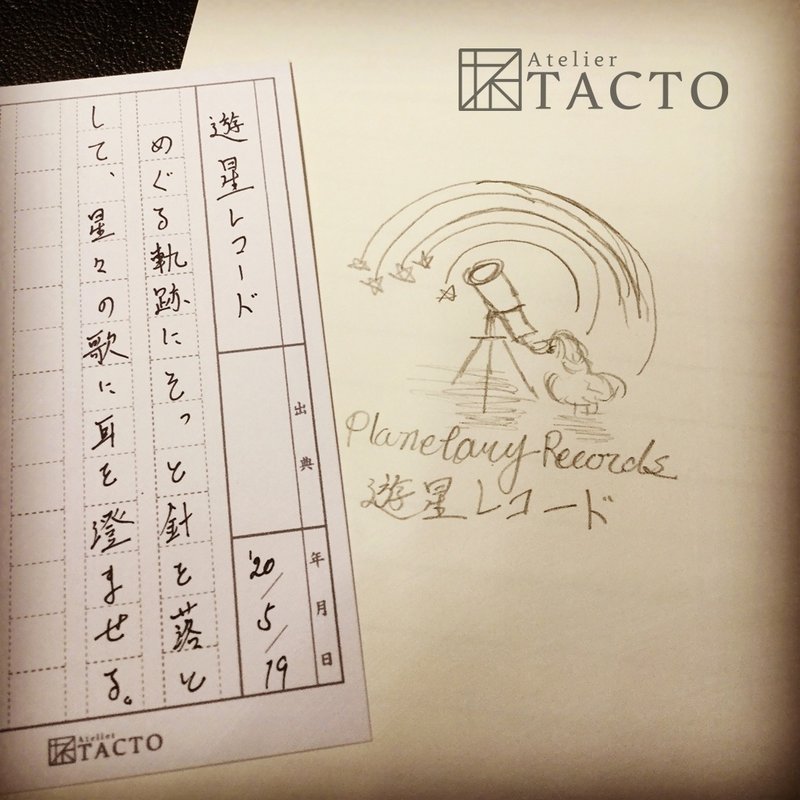 Atelier
TACTO
遊星レコード
出典
年月日
'20/5/19
めぐる軌跡にそっと針を落と
して、星々の歌に耳を澄ませる。
Atelier
TACTO
Planetary Records
遊星レコード